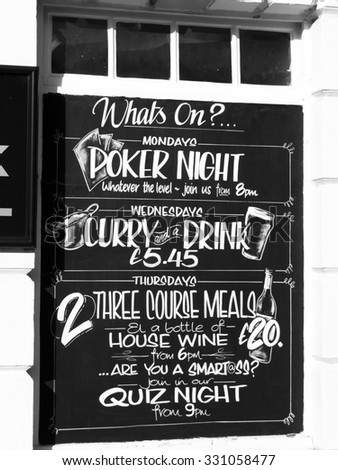 Whats On?...
MONDAYS
POKER NIGHT
Whatever the level ~ join us from 8pm
WEDNESDAYS
CURRY and a DRINK
£5.45
THURSDAYS
2 THREE COURSE MEALS
& a bottle of
HOUSE WINE £20.
from 6pm...
... ARE YOU A SMART@SS?
join in our
QUIZ NIGHT
from 9pm
shutterstock
IMAGE ID: 331058477
www.shutterstock.com